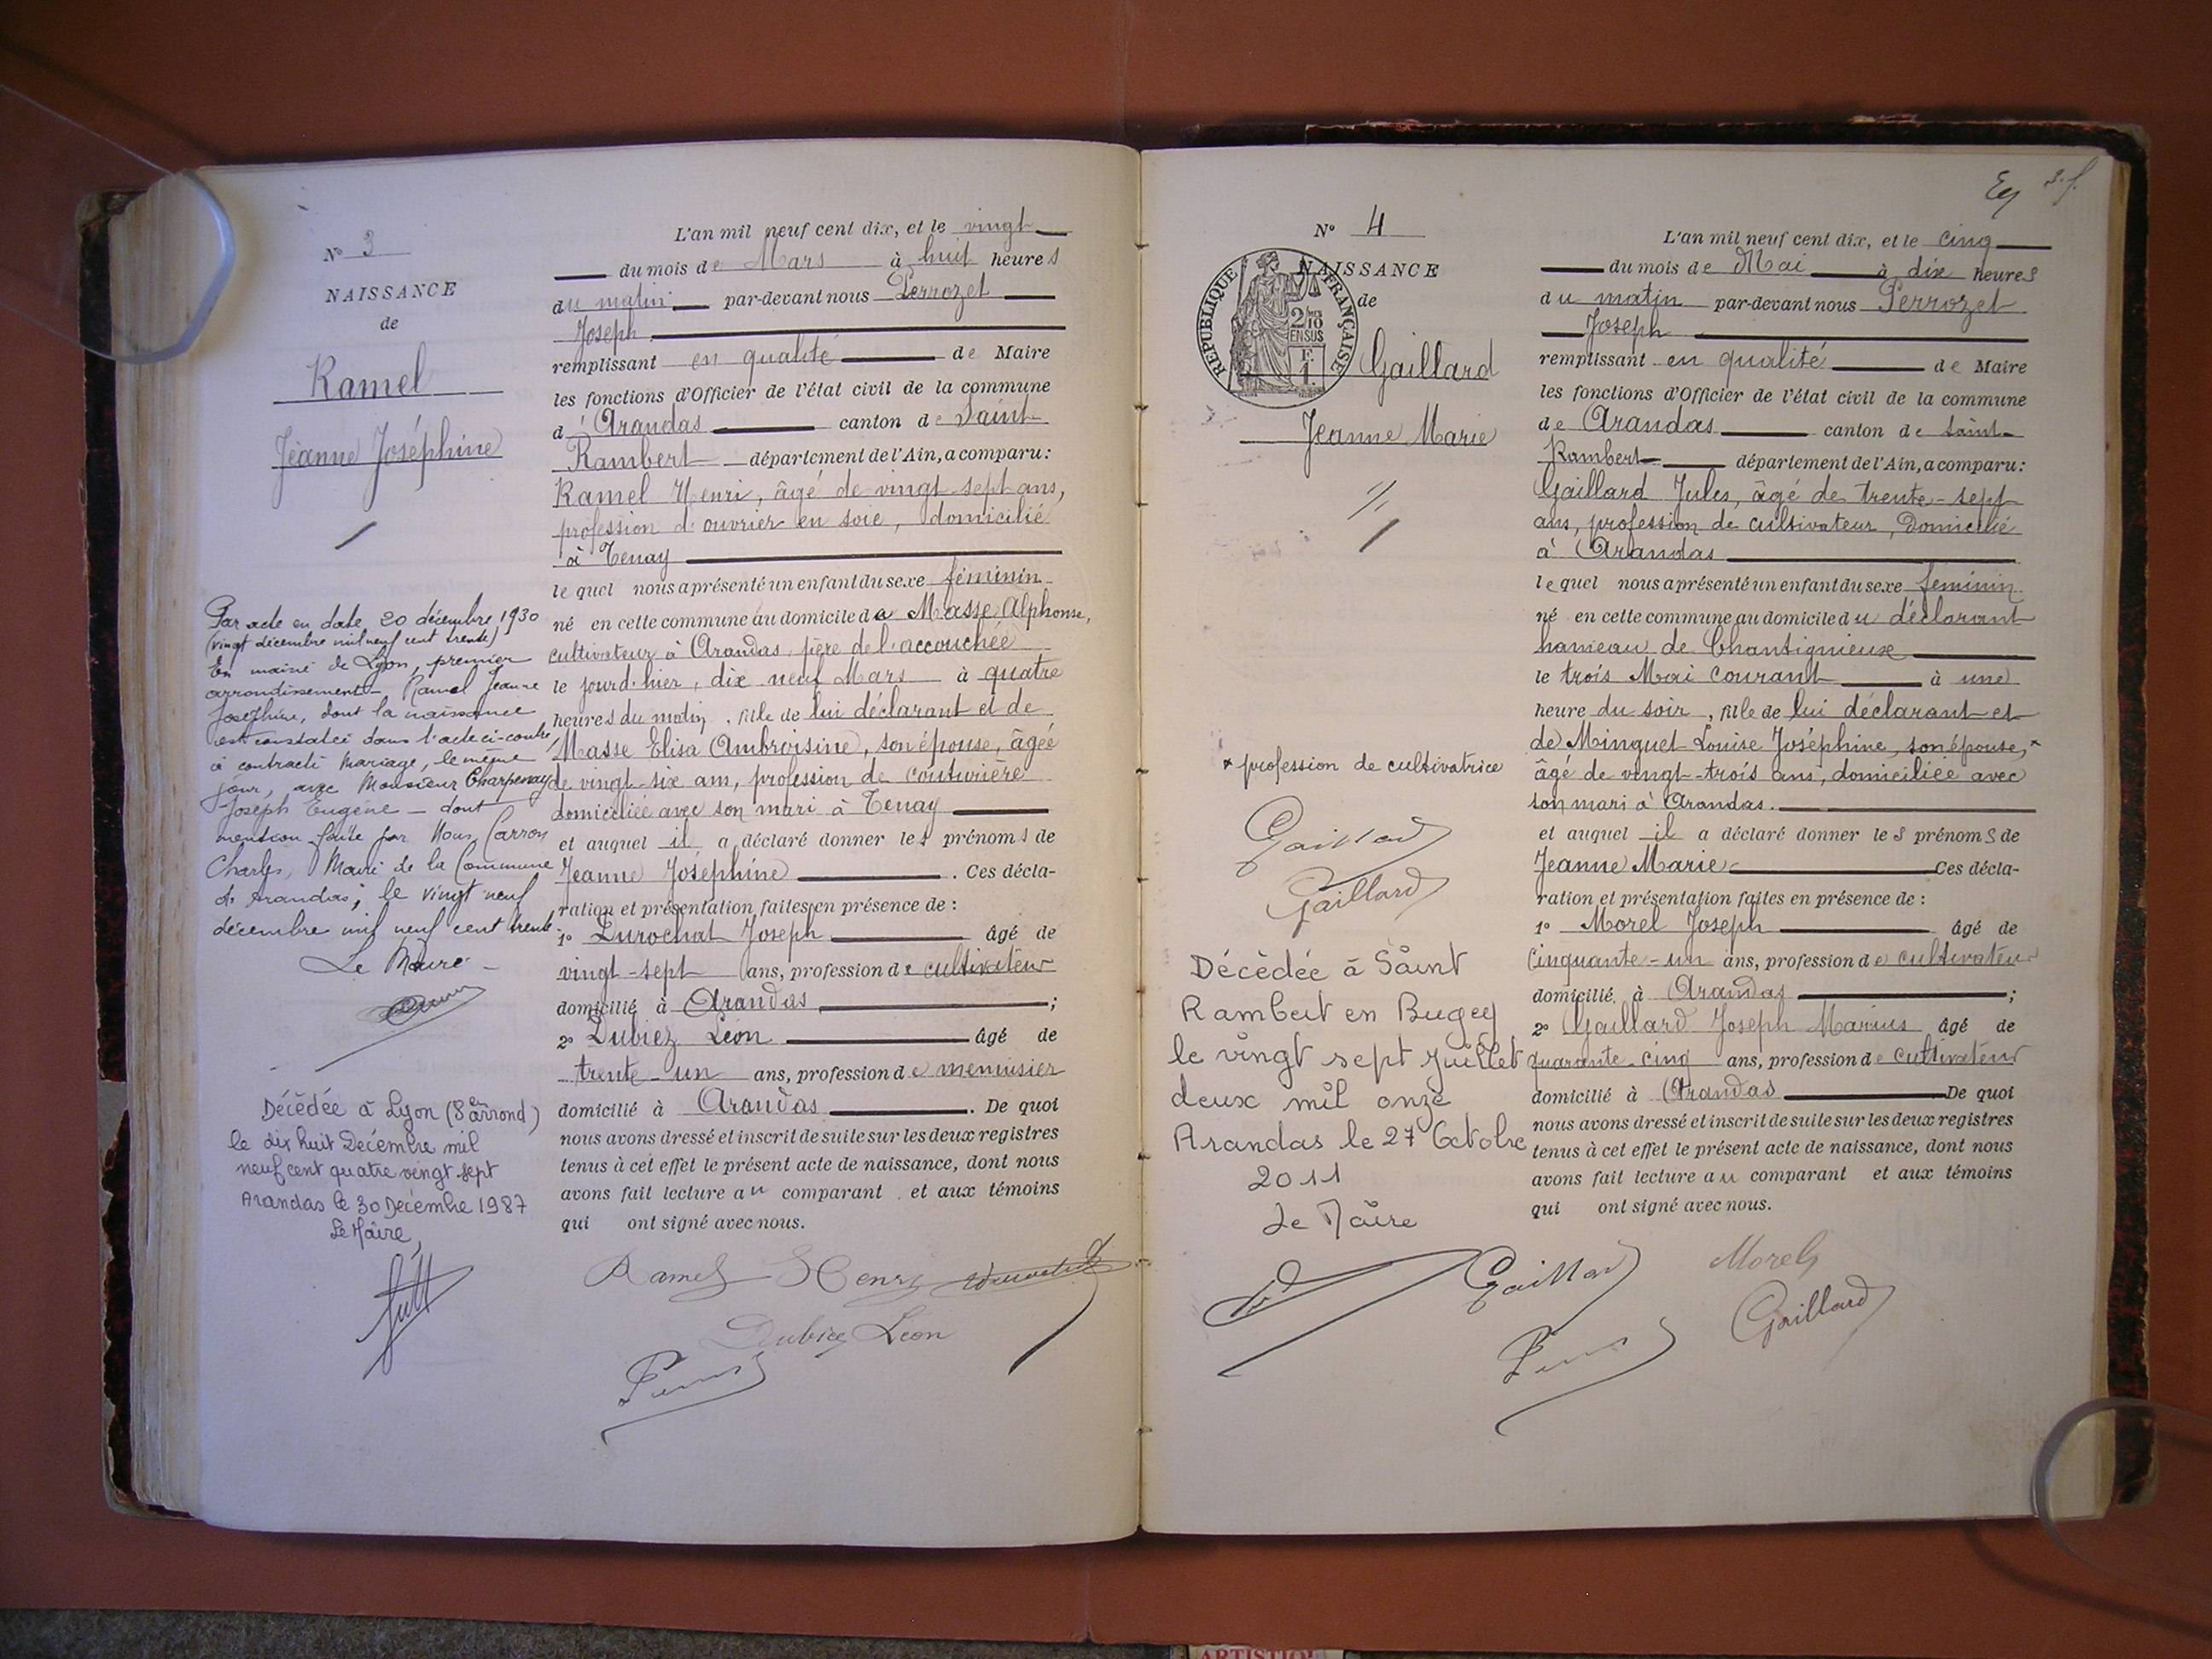 N° 3
NAISSANCE
de
Ramel
Jeanne Joséphine
Par acte en date 20 décembre 1930
(vingt décembre mil neuf cent trente)
En mairie de Lyon, premier
arrondissement Ramel Jeanne
Joséphine, dont la naissance
est constatée dans l'acte ci-contre,
a contracté mariage, le même
jour, avec Monsieur Charpenay
Joseph Eugène - dont
mention faite par Nous, Carron
Charles, Maire de la Commune
d'Arandas, le vingt neuf
décembre mil neuf cent trente
Le Maire
Décédée à Lyon (8em arrond)
le dix huit Decémbre mil
neuf cent quatre vingt-sept
Arandas le 30 Decémbre 1987
Le Maire,
L'an mil neuf cent dix, et le vingt
du mois de Mars à huit heures
du matin par-devant nous Perrozet
Joseph
remplissant en qualité de Maire
les fonctions d'Officier de l'état civil de la commune
d'Arandas canton de Saint
Rambert département de l'Ain, a comparu :
Ramel Henri, âgé de vingt sept ans,
profession d'ouvrier en soie, domicilié
à Tenay
lequel nous a présenté un enfant du sexe féminin
né en cette commune au domicile de Masse Alphonse,
cultivateur à Arandas, père de l'accouchée
le jour d'hier, dix neuf Mars à quatre
heures du matin, fille de lui déclarant et de
Masse Elisa Ambroisine, son épouse, âgée
de vingt-six ans, profession de couturière
domiciliée avec son mari à Tenay
et auquel il a déclaré donner les prénoms de
Jeanne Joséphine . Ces décla-
ration et présentation faites en présence de :
1° Joseph âgé de
vingt-sept ans, profession de cultivateur
domicilié à Arandas ;
2° Dubiez Léon âgé de
trente-un ans, profession de menuisier
domicilié à Arandas . De quoi
nous avons dressé et inscrit de suite sur les deux registres
tenus à cet effet le présent acte de naissance, dont nous
avons fait lecture au comparant et aux témoins
qui ont signé avec nous.
Ramel Henri
Dubiez Léon
N° 4
NAISSANCE
de
RÉPUBLIQUE FRANÇAISE
2/10
EN SUS
Gaillard
Jeanne Marie
* profession de cultivatrice
Gaillard
Gaillard
Décèdée à Saint
Rambert en Bugey
le vingt sept juillet
deux mil onze
Arandas le 27 Octobre
2011
Le Maire
L'an mil neuf cent dix, et le cinq
du mois de Mai à dix heures
du matin par-devant nous Perrozet
Joseph
remplissant en qualité de Maire
les fonctions d'Officier de l'état civil de la commune
de Arandas canton de Saint-
Rambert département de l'Ain, a comparu :
Gaillard Jules, âgé de trente-sept
ans, profession de cultivateur, domicilié
à Arandas
lequel nous a présenté un enfant du sexe féminin
né en cette commune au domicile du déclarant
hameau de Chantignieux
le trois Mai courant à une
heure du soir, fille de lui déclarant et
de Minguet Louise Joséphine, son épouse, *
âgé de vingt-trois ans, domiciliée avec
son mari à Arandas.
et auquel il a déclaré donner les prénoms de
Jeanne Marie Ces décla-
ration et présentation faites en présence de :
1° Morel Joseph âgé de
Cinquante-un ans, profession de cultivateur
domicilié à Arandas ;
2° Gaillard Joseph Marius âgé de
quarante-cinq ans, profession de cultivateur
domicilié à Arandas De quoi
nous avons dressé et inscrit de suite sur les deux registres
tenus à cet effet le présent acte de naissance, dont nous
avons fait lecture au comparant et aux témoins
qui ont signé avec nous.
Gaillard Morel
Gaillard
ARTISTIQU